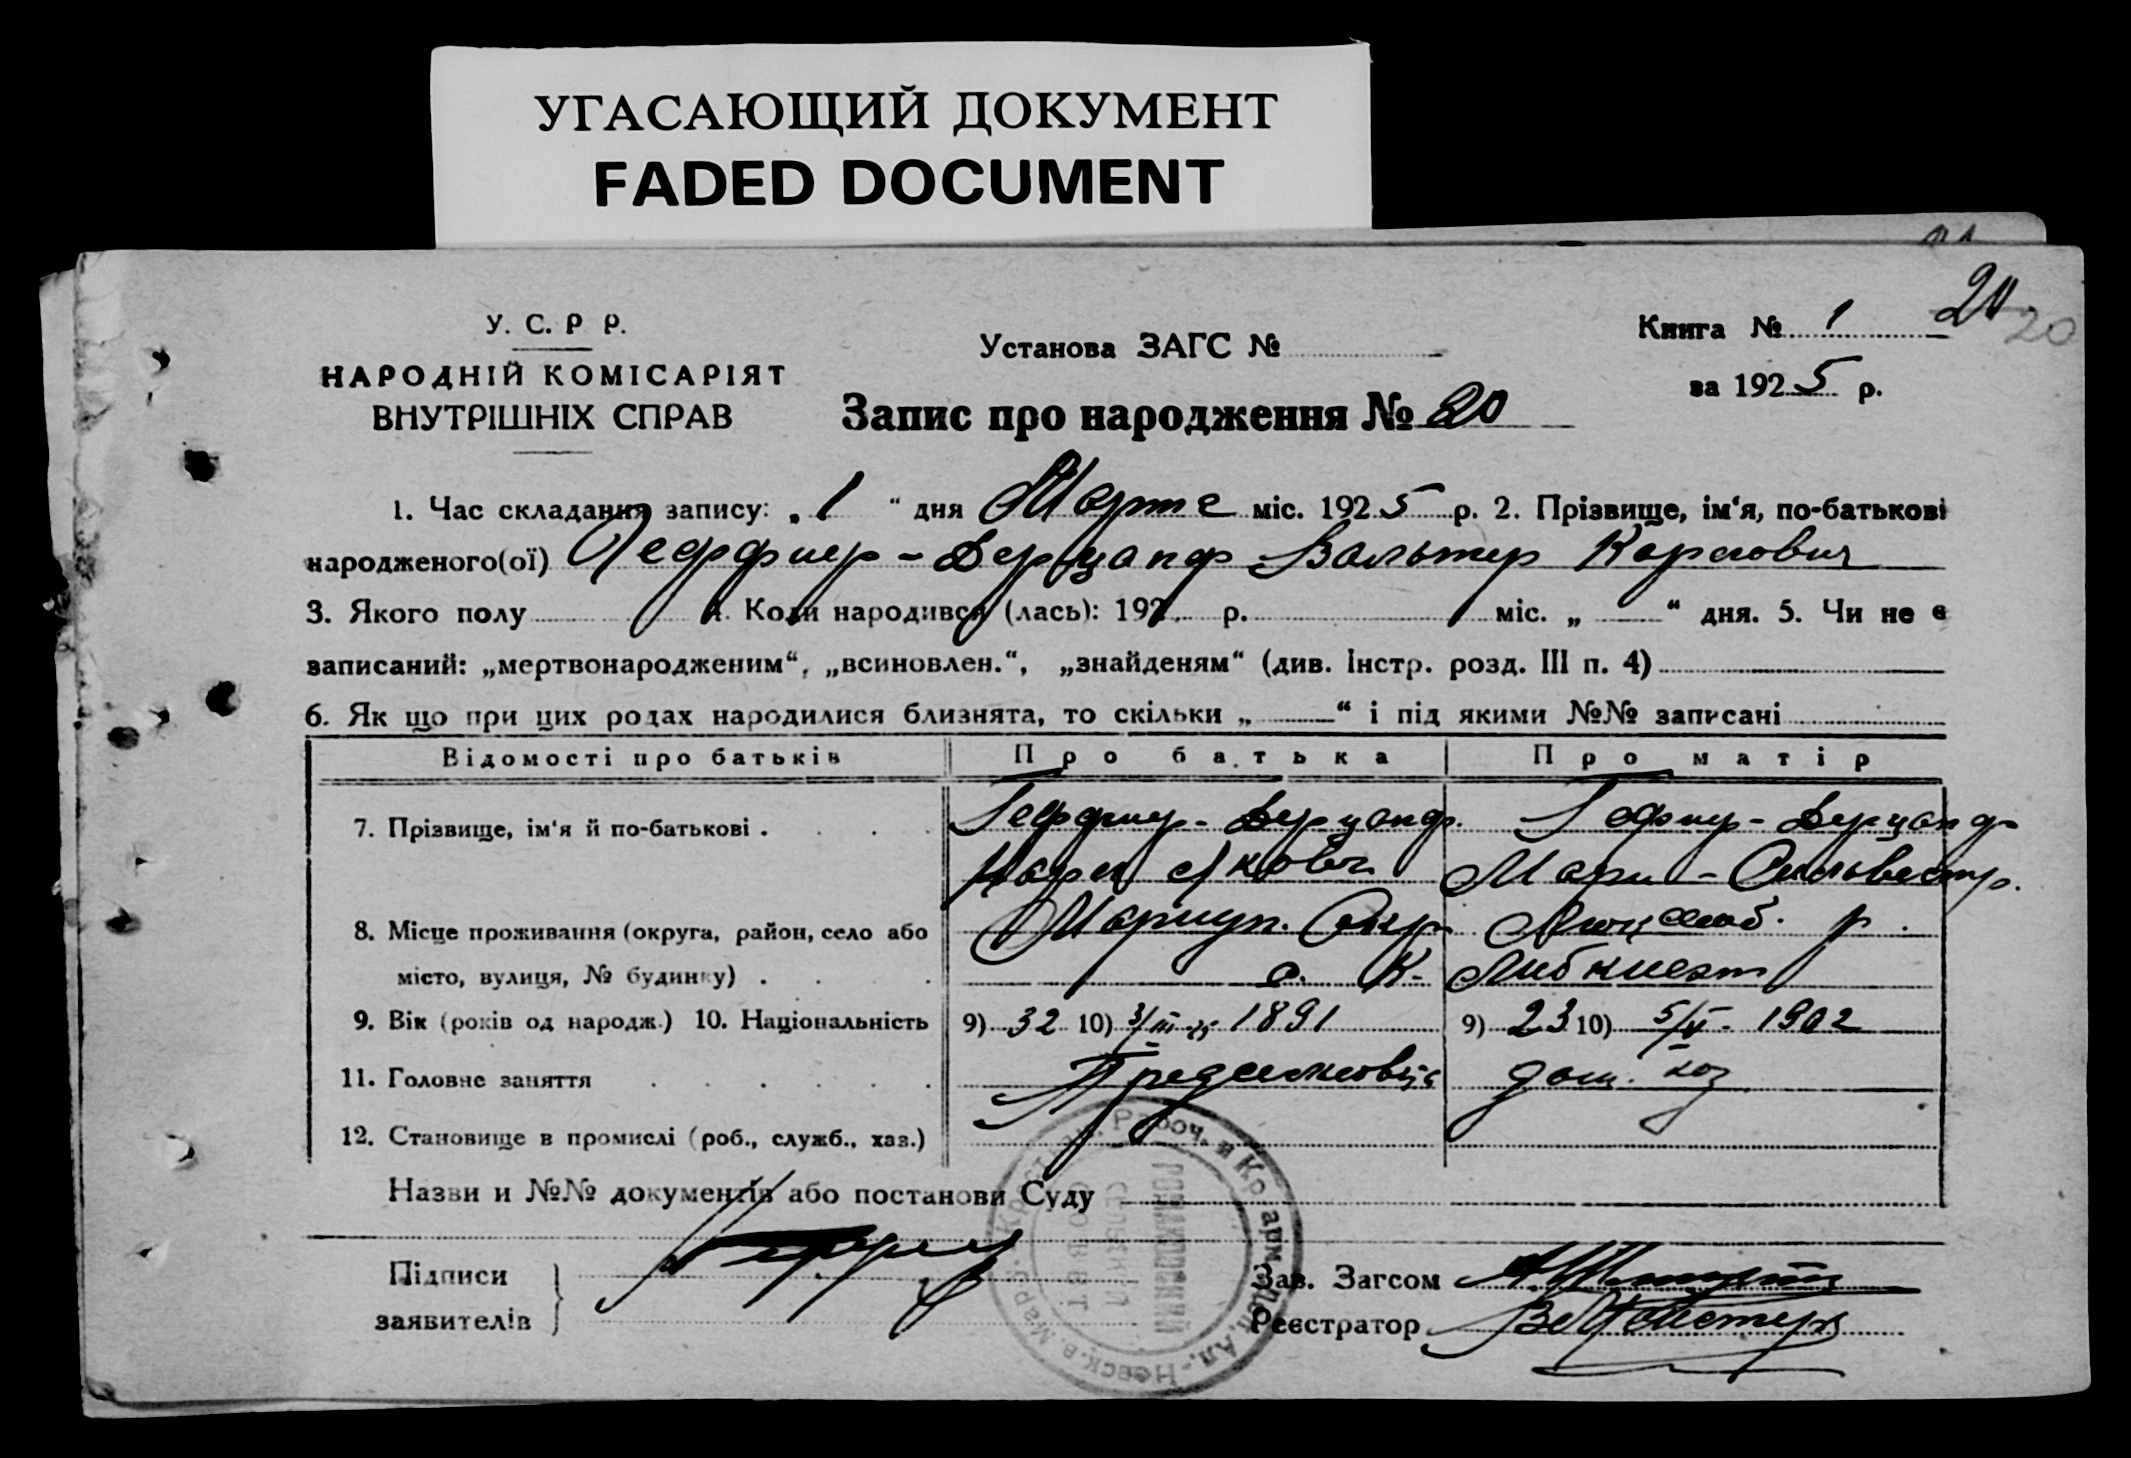 УГАСАЮЩИЙ ДОКУМЕНТ
FADED DOCUMENT
У. С. Р Р.
НАРОДНІЙ КОМІСАРІЯТ
ВНУТРІШНІХ СПРАВ
Установа ЗАГС №
Книга № 1
20
за 1925 р.
Запис про народження № 20
1. Час складання запису: „ 1 “ дня Марта міс. 1925 р. 2. Прізвище, ім‘я, по-батькові
народженого(ої) Геффнер-Дерцапф Вальтер Карлович
3. Якого полу 4. Коли народився (лась): 192 р. міс. „ “ дня. 5. Чи не є
записаний: „мертвонародженим“, „всиновлен.“, „знайденям“ (див. Інстр. розд. III п. 4)
6. Як що при цих родах народилися близнята, то скільки „ “ і під якими №№ записані
Відомості про батьків Про батька Про матір
7. Прізвище, ім‘я й по-батькові . Геффнер-Дерцапф. Гефнер-Дерцапф
Карл Мари-Сильвестр.
8. Місце проживання (округа, район, село або Мариуп. Окр. Люксемб. р.
місто, вулиця, № будинку) . с. К. Либкнехт
9. Вік (років од народж.) 10. Національність 9) 32 10) 1891 9) 23 10) 1902
11. Головне заняття дом. хоз
12. Становище в промислі (роб., служб., хаз.)
Назви и №№ документів або постанови Суду
Підписи
заявителів
Зав. Загсом
Реєстратор